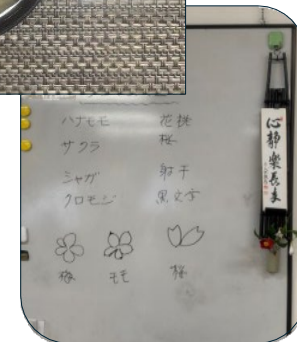 ハナモモ 花桃
サクラ 桜
シャガ 射干
クロモジ 黒文字
梅 モモ 桜
心静楽長年